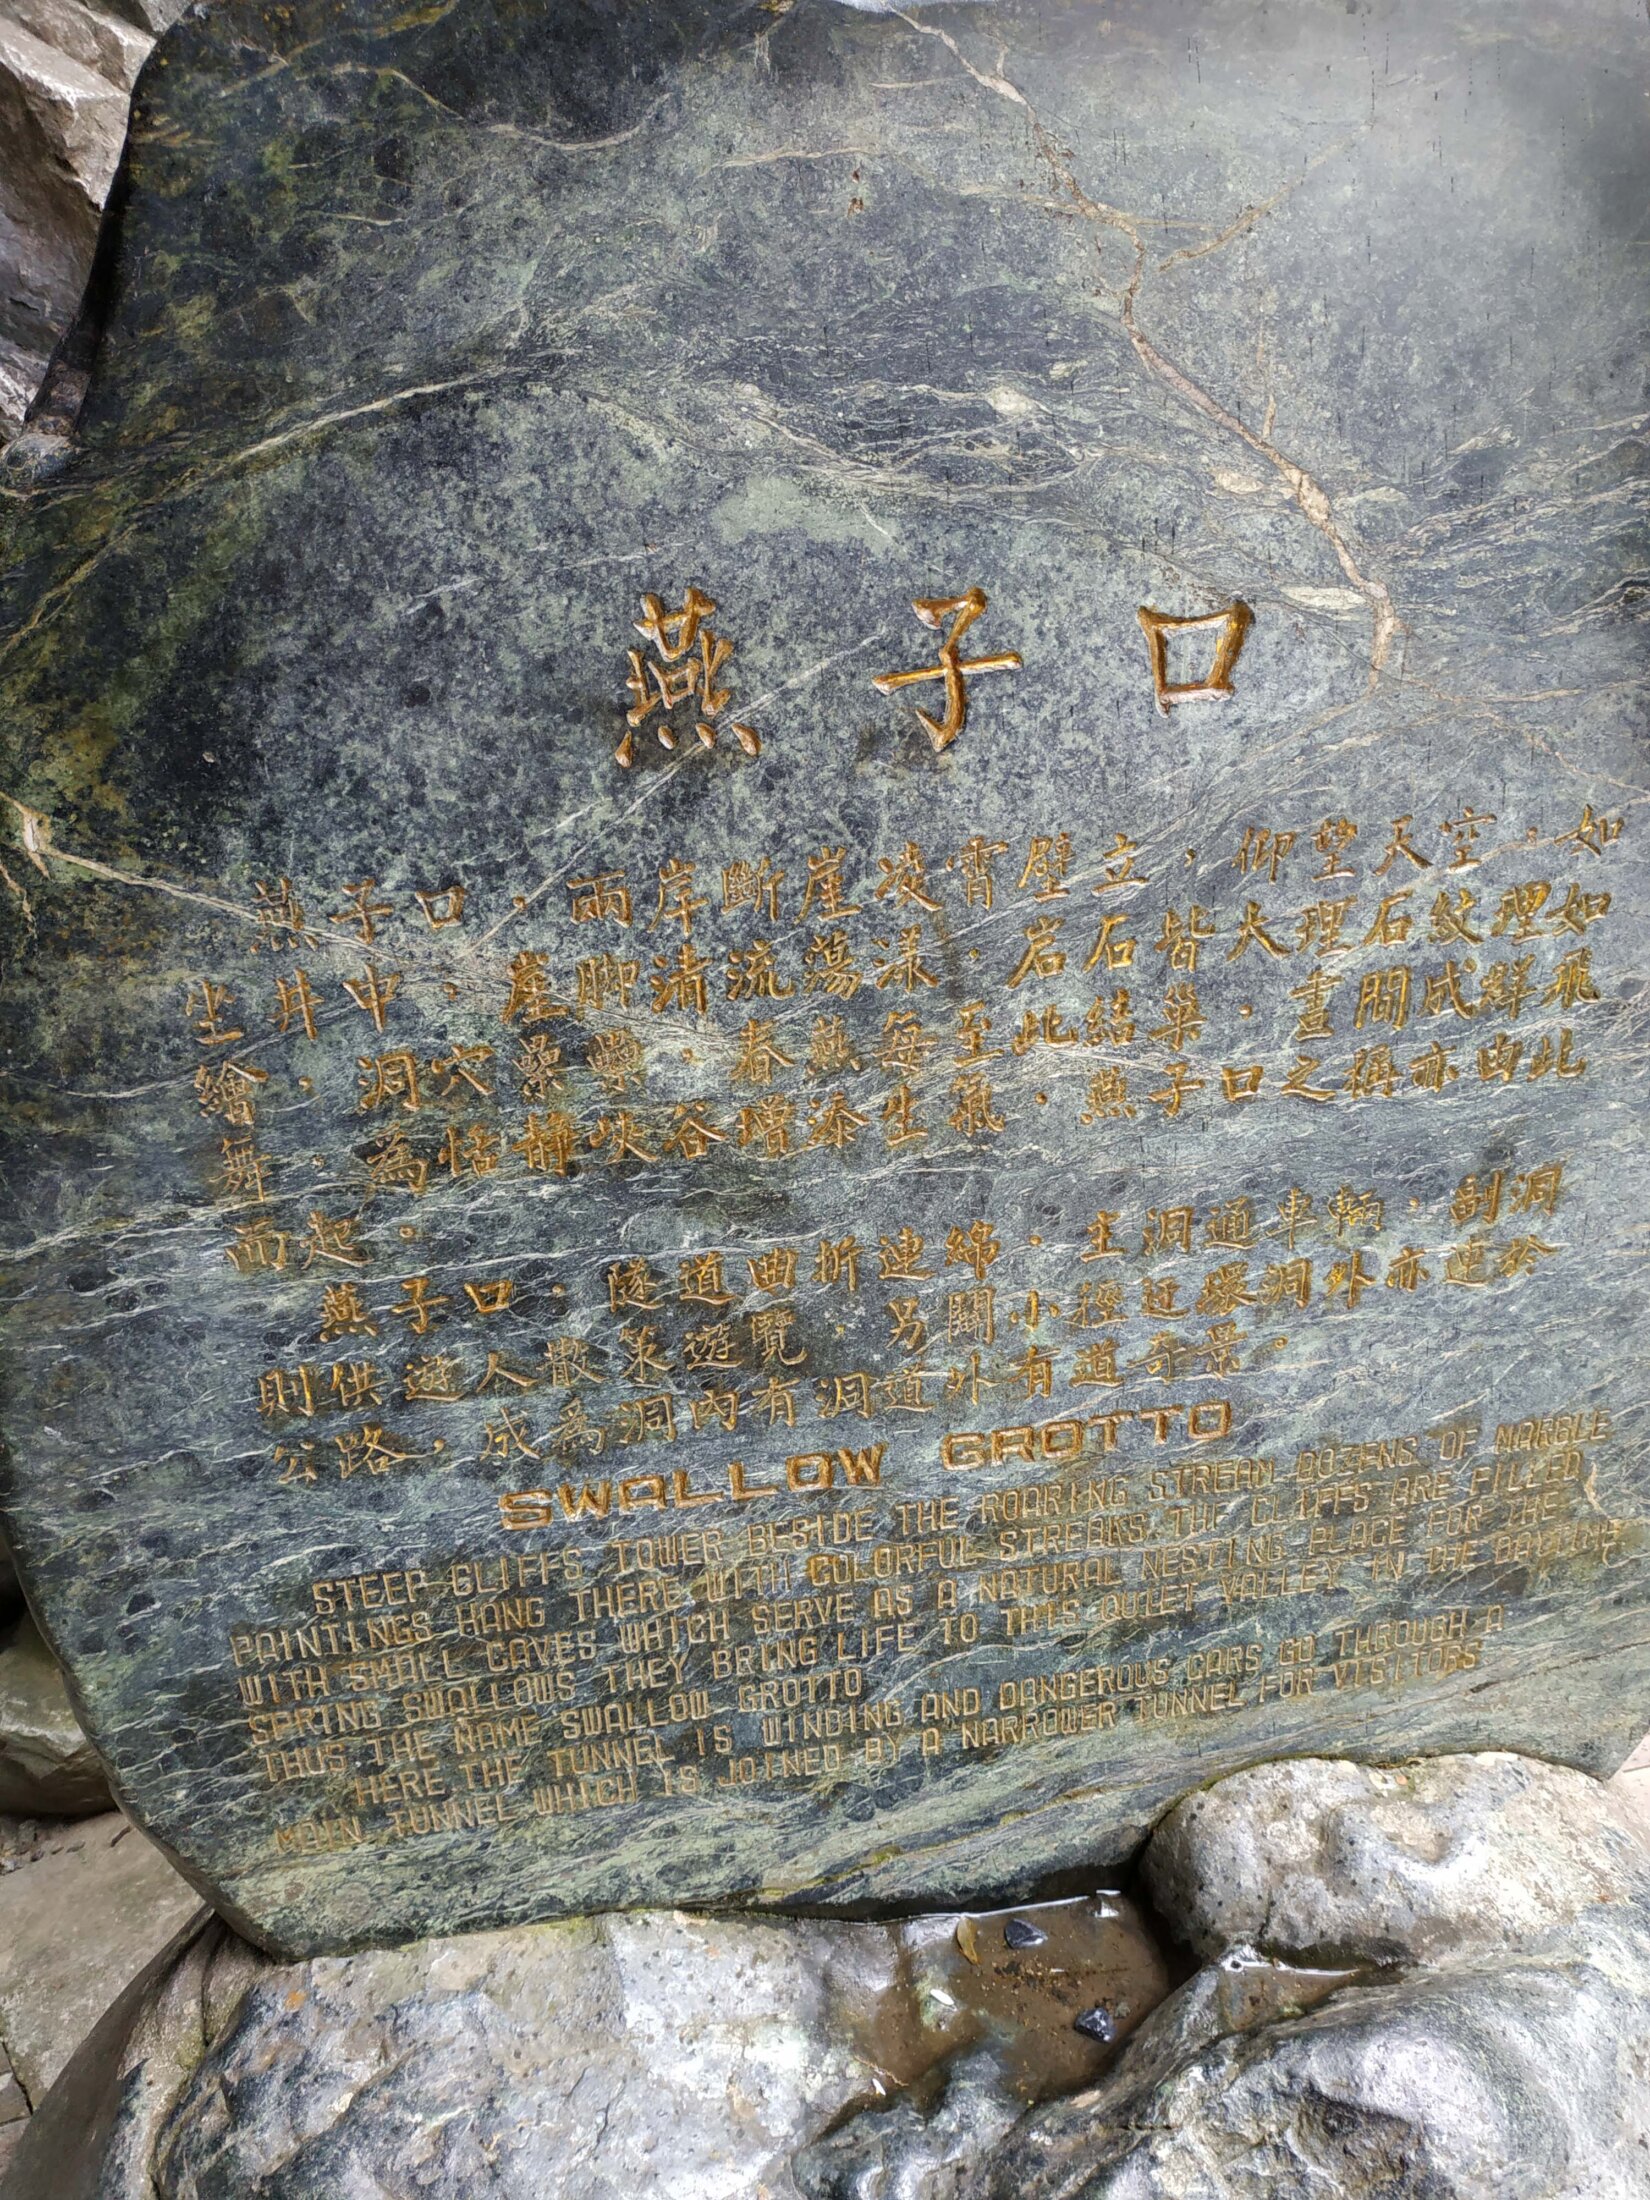 燕子口
燕子口，兩岸斷崖凌霄壁立，仰望天空，如
坐井中，崖脚清流蕩漾，岩石皆大理石紋理如
繪，洞穴纍纍，春燕每至此結巢，晝間成群飛
舞，為恬靜峽谷增添生氣，燕子口之稱亦由此
而起。
燕子口，隧道曲折連綿，主洞通車輛，副洞
則供遊人散策遊覽，另闢小徑迂環洞外亦達於
公路，成為洞內有洞道外有道奇景。
SWALLOW GROTTO
STEEP CLIFFS TOWER BESIDE THE ROARING STREAM DOZENS OF MARBLE
PAINTINGS HANG THERE WITH COLORFUL STREAKS THE CLIFFS ARE FILLED
WITH SMALL CAVES WHICH SERVE AS A NATURAL NESTING PLACE FOR THE
SPRING SWALLOWS THEY BRING LIFE TO THIS QUIET VALLEY IN THE DAYTIME
THUS THE NAME SWALLOW GROTTO
HERE THE TUNNEL IS WINDING AND DANGEROUS CARS GO THROUGH A
MAIN TUNNEL WHICH IS JOINED BY A NARROWER TUNNEL FOR VISITORS